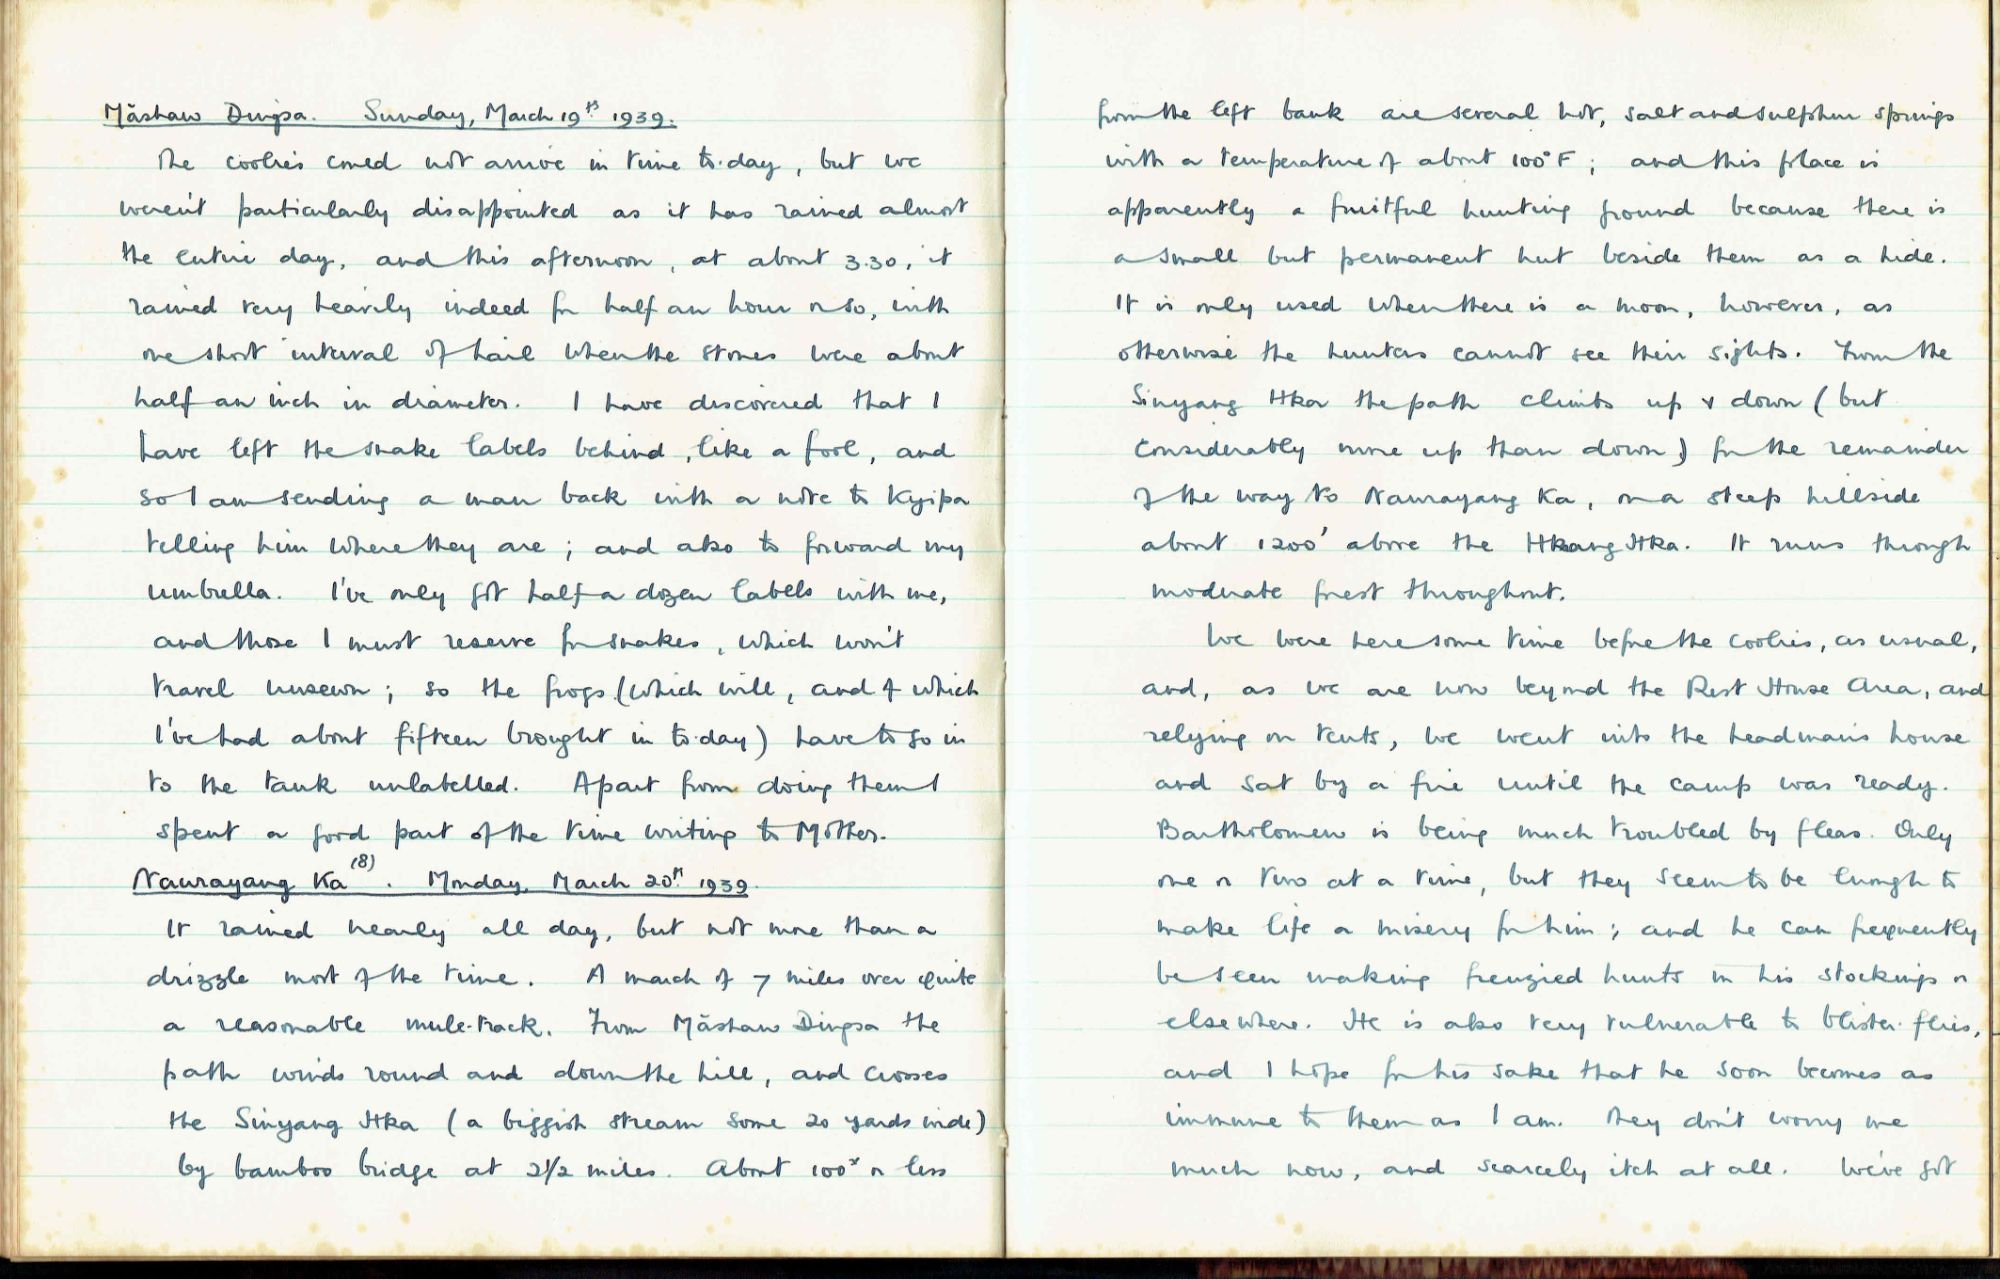 Măshaw Dingsa. Sunday, March 19th 1939.
The coolies coud not arrive in time to-day, but we
weren't particularly disappointed as it has rained almost
the entire day, and this afternoon, at about 3.30, it
rained very heavily indeed for half an hour or so, with
one short interval of hail when the stones were about
half an inch in diameter. I have discovered that I
have left the snake labels behind, like a fool, and
so I am sending a man back with a note to Kyipa
telling him where they are; and also to forward my
umbrella. I've only got half a dozen labels with me,
and those I must reserve for snakes, which won't
travel unsewn; so the frogs (which will, and of which
I've had about fifteen brought in to-day) have to go in
to the tank unlabelled. Apart from doing them I
spent a good part of the time writing to Mother.
Nawrayang Ka (8). Monday, March 20th 1939.
It rained nearly all day, but not more than a
drizzle most of the time. A march of 7 miles over quite
a reasonable mule-track. From Măshaw Dingsa the
path winds round and down the hill, and crosses
the Sinyang Hka (a biggish stream some 20 yards wide)
by bamboo bridge at 2 1/2 miles. About 100x or less
from the left bank are several hot, salt and sulphur springs
with a temperature of about 100°F; and this place is
apparently a fruitful hunting ground because there is
a small but permanent hut beside them as a hide.
It is only used when there is a moon, however, as
otherwise the hunters cannot see their sights. From the
Sinyang Hka the path climbs up & down (but
considerably more up than down) for the remainder
of the way to Nawrayang Ka, on a steep hillside
about 1200' above the Hkang Hka. It runs through
moderate forest throughout.
We were here some time before the coolies, as usual,
and, as we are now beyond the Rest House Area, and
relying on tents, we went into the headman's house
and sat by a fire until the camp was ready.
Bartholomew is being much troubled by fleas. Only
one or two at a time, but they seem to be enough to
make life a misery for him; and he can frequently
be seen making frenzied hunts in his stockings or
elsewhere. He is also very vulnerable to blister-flies,
and I hope for his sake that he soon becomes as
immune to them as I am. They don't worry me
much now, and scarcely itch at all. We've got